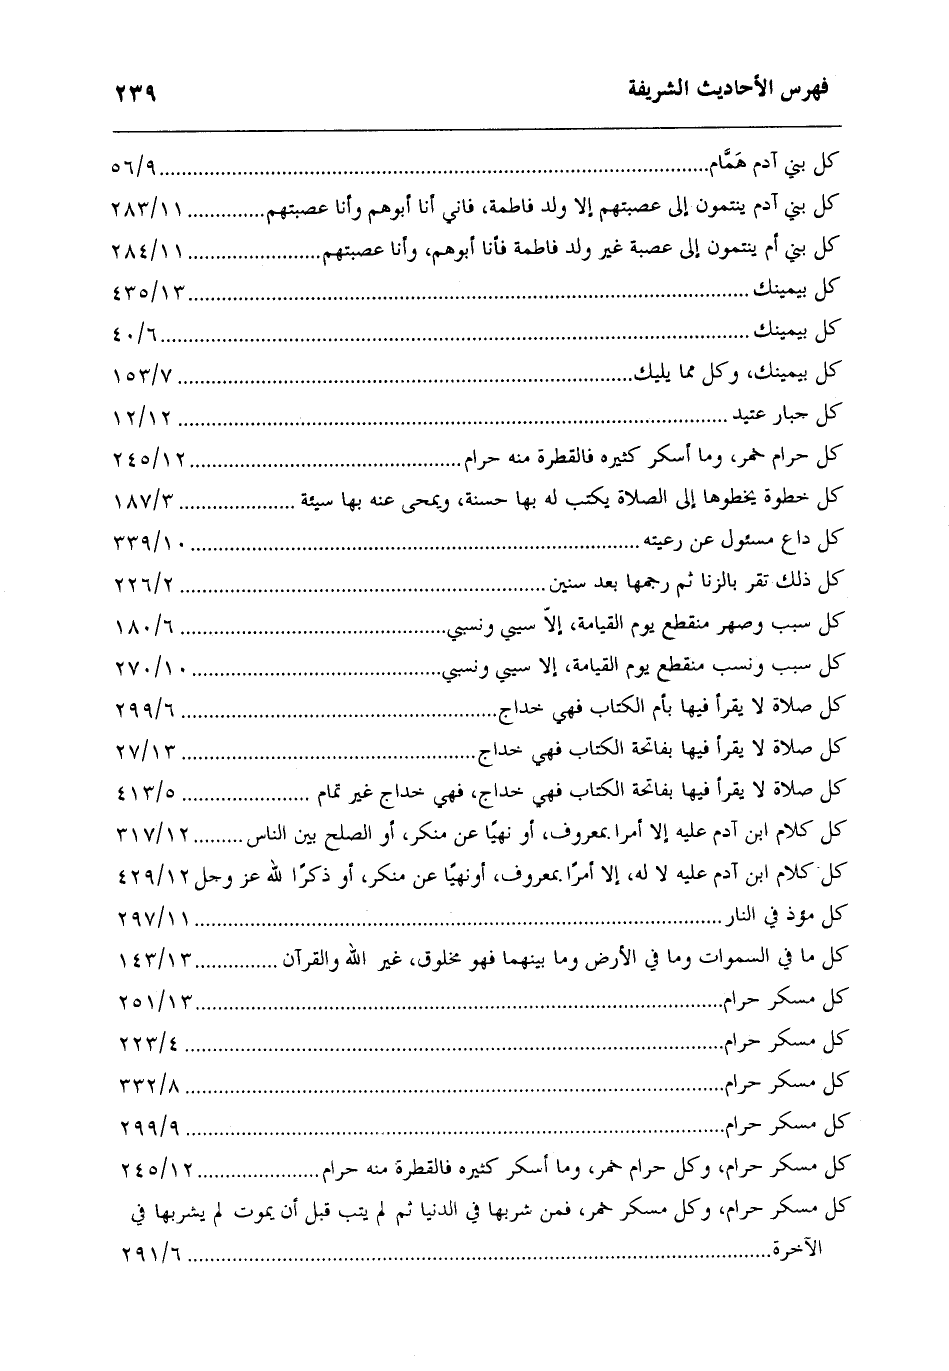 فهرس الأحاديث الشريفة ٢٣٩
كل بني آدم هَمَّام ٥٦/٩
كل بني آدم ينتمون إلى عصبتهم إلا ولد فاطمة، فاني أنا أبوهم وأنا عصبتهم ٢٨٣/١١
كل بني أم ينتمون إلى عصبة غير ولد فاطمة فأنا أبوهم، وأنا عصبتهم ٢٨٤/١١
كل بيمينك ٤٣٥/١٣
كل بيمينك ٤٠/٦
كل بيمينك، وكل مما يليك ١٥٣/٧
كل جبار عتيد ١٢/١٢
كل حرام خمر، وما أسكر كثيره فالقطرة منه حرام ٢٤٥/١٢
كل خطوة يخطوها إلى الصلاة يكتب له بها حسنة، ويمحى عنه بها سيئة ١٨٧/٣
كل داع مسئول عن رعيته ٣٣٩/١٠
كل ذلك تقر بالزنا ثم رجمها بعد سنين ٢٢٦/٢
كل سبب وصهر منقطع يوم القيامة، إلاّ سببي ونسبي ١٨٠/٦
كل سبب ونسب منقطع يوم القيامة، إلا سببي ونسبي ٢٧٠/١٠
كل صلاة لا يقرأ فيها بأم الكتاب فهي خداج ٢٩٩/٦
كل صلاة لا يقرأ فيها بفاتحة الكتاب فهي خداج ٢٧/١٣
كل صلاة لا يقرأ فيها بفاتحة الكتاب فهي خداج، فهي خداج غير تمام ٤١٣/٥
كل كلام ابن آدم عليه إلا أمرا بمعروف، أو نهيًا عن منكر، أو الصلح بين الناس ٣١٧/١٢
كل كلام ابن آدم عليه لا له، إلا أمرًا بمعروف، أونهيًا عن منكر، أو ذكرًا لله عز وجل ٤٢٩/١٢
كل مؤذ في النار ٢٩٧/١١
كل ما في السموات وما في الأرض وما بينهما فهو مخلوق، غير الله والقرآن ١٤٣/١٣
كل مسكر حرام ٢٥١/١٣
كل مسكر حرام ٢٢٣/٤
كل مسكر حرام ٣٣٢/٨
كل مسكر حرام ٢٩٩/٩
كل مسكر حرام، وكل حرام خمر، وما أسكر كثيره فالقطرة منه حرام ٢٤٥/١٢
كل مسكر حرام، وكل مسكر خمر، فمن شربها في الدنيا ثم لم يتب قبل أن يموت لم يشربها في
الآخرة ٢٩١/٦